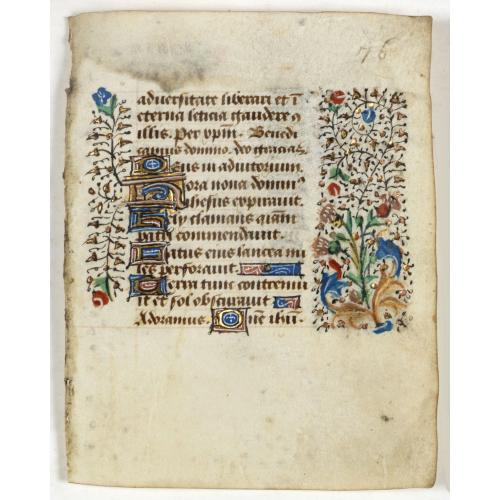 76
aduersitate liberari et i
eterna leticia gaudere 9
illis. Per xpm. Benedi
camus domino. deo gracias
Deus in adiutorium.
Hora nona dominus
Ihesus expirauit.
Hely clamans animam
patri commendauit.
Latus eius lancea mi
les perforauit.
Terra tunc contremu
it et sol obscurauit
Adoramus. Dñe ihu